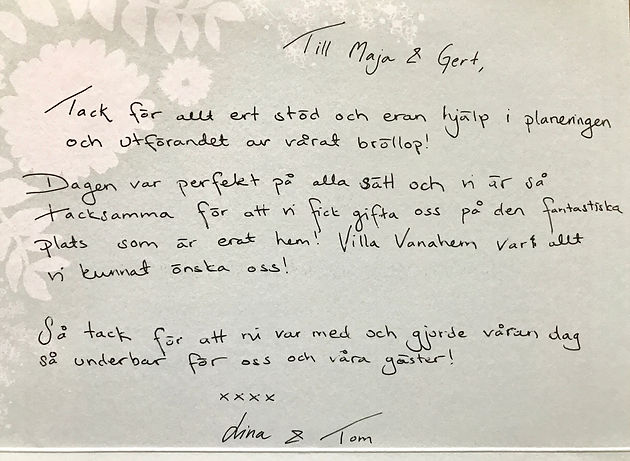 Till Maja & Gert,
Tack för allt ert stöd och eran hjälp i planeringen
och utförandet av vårat bröllop!
Dagen var perfekt på alla sätt och vi är så
tacksamma för att vi fick gifta oss på den fantastiska
plats som är erat hem! Villa Vanahem var allt
vi kunnat önska oss!
Så tack för att ni var med och gjorde våran dag
så underbar för oss och våra gäster!
xxxx
Lina & Tom